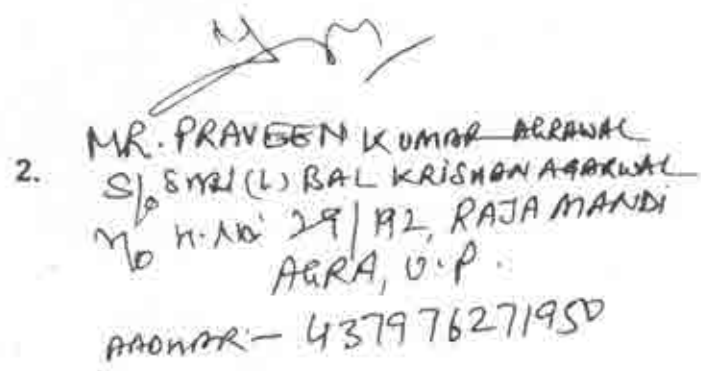 2. MR. PRAVEEN KUMAR AGRAWAL
S/o SHRI (L) BAL KRISHAN AGARWAL
R/o H.No 29/192, RAJA MANDI
AGRA, U.P.
AADHAR:- 437976271950